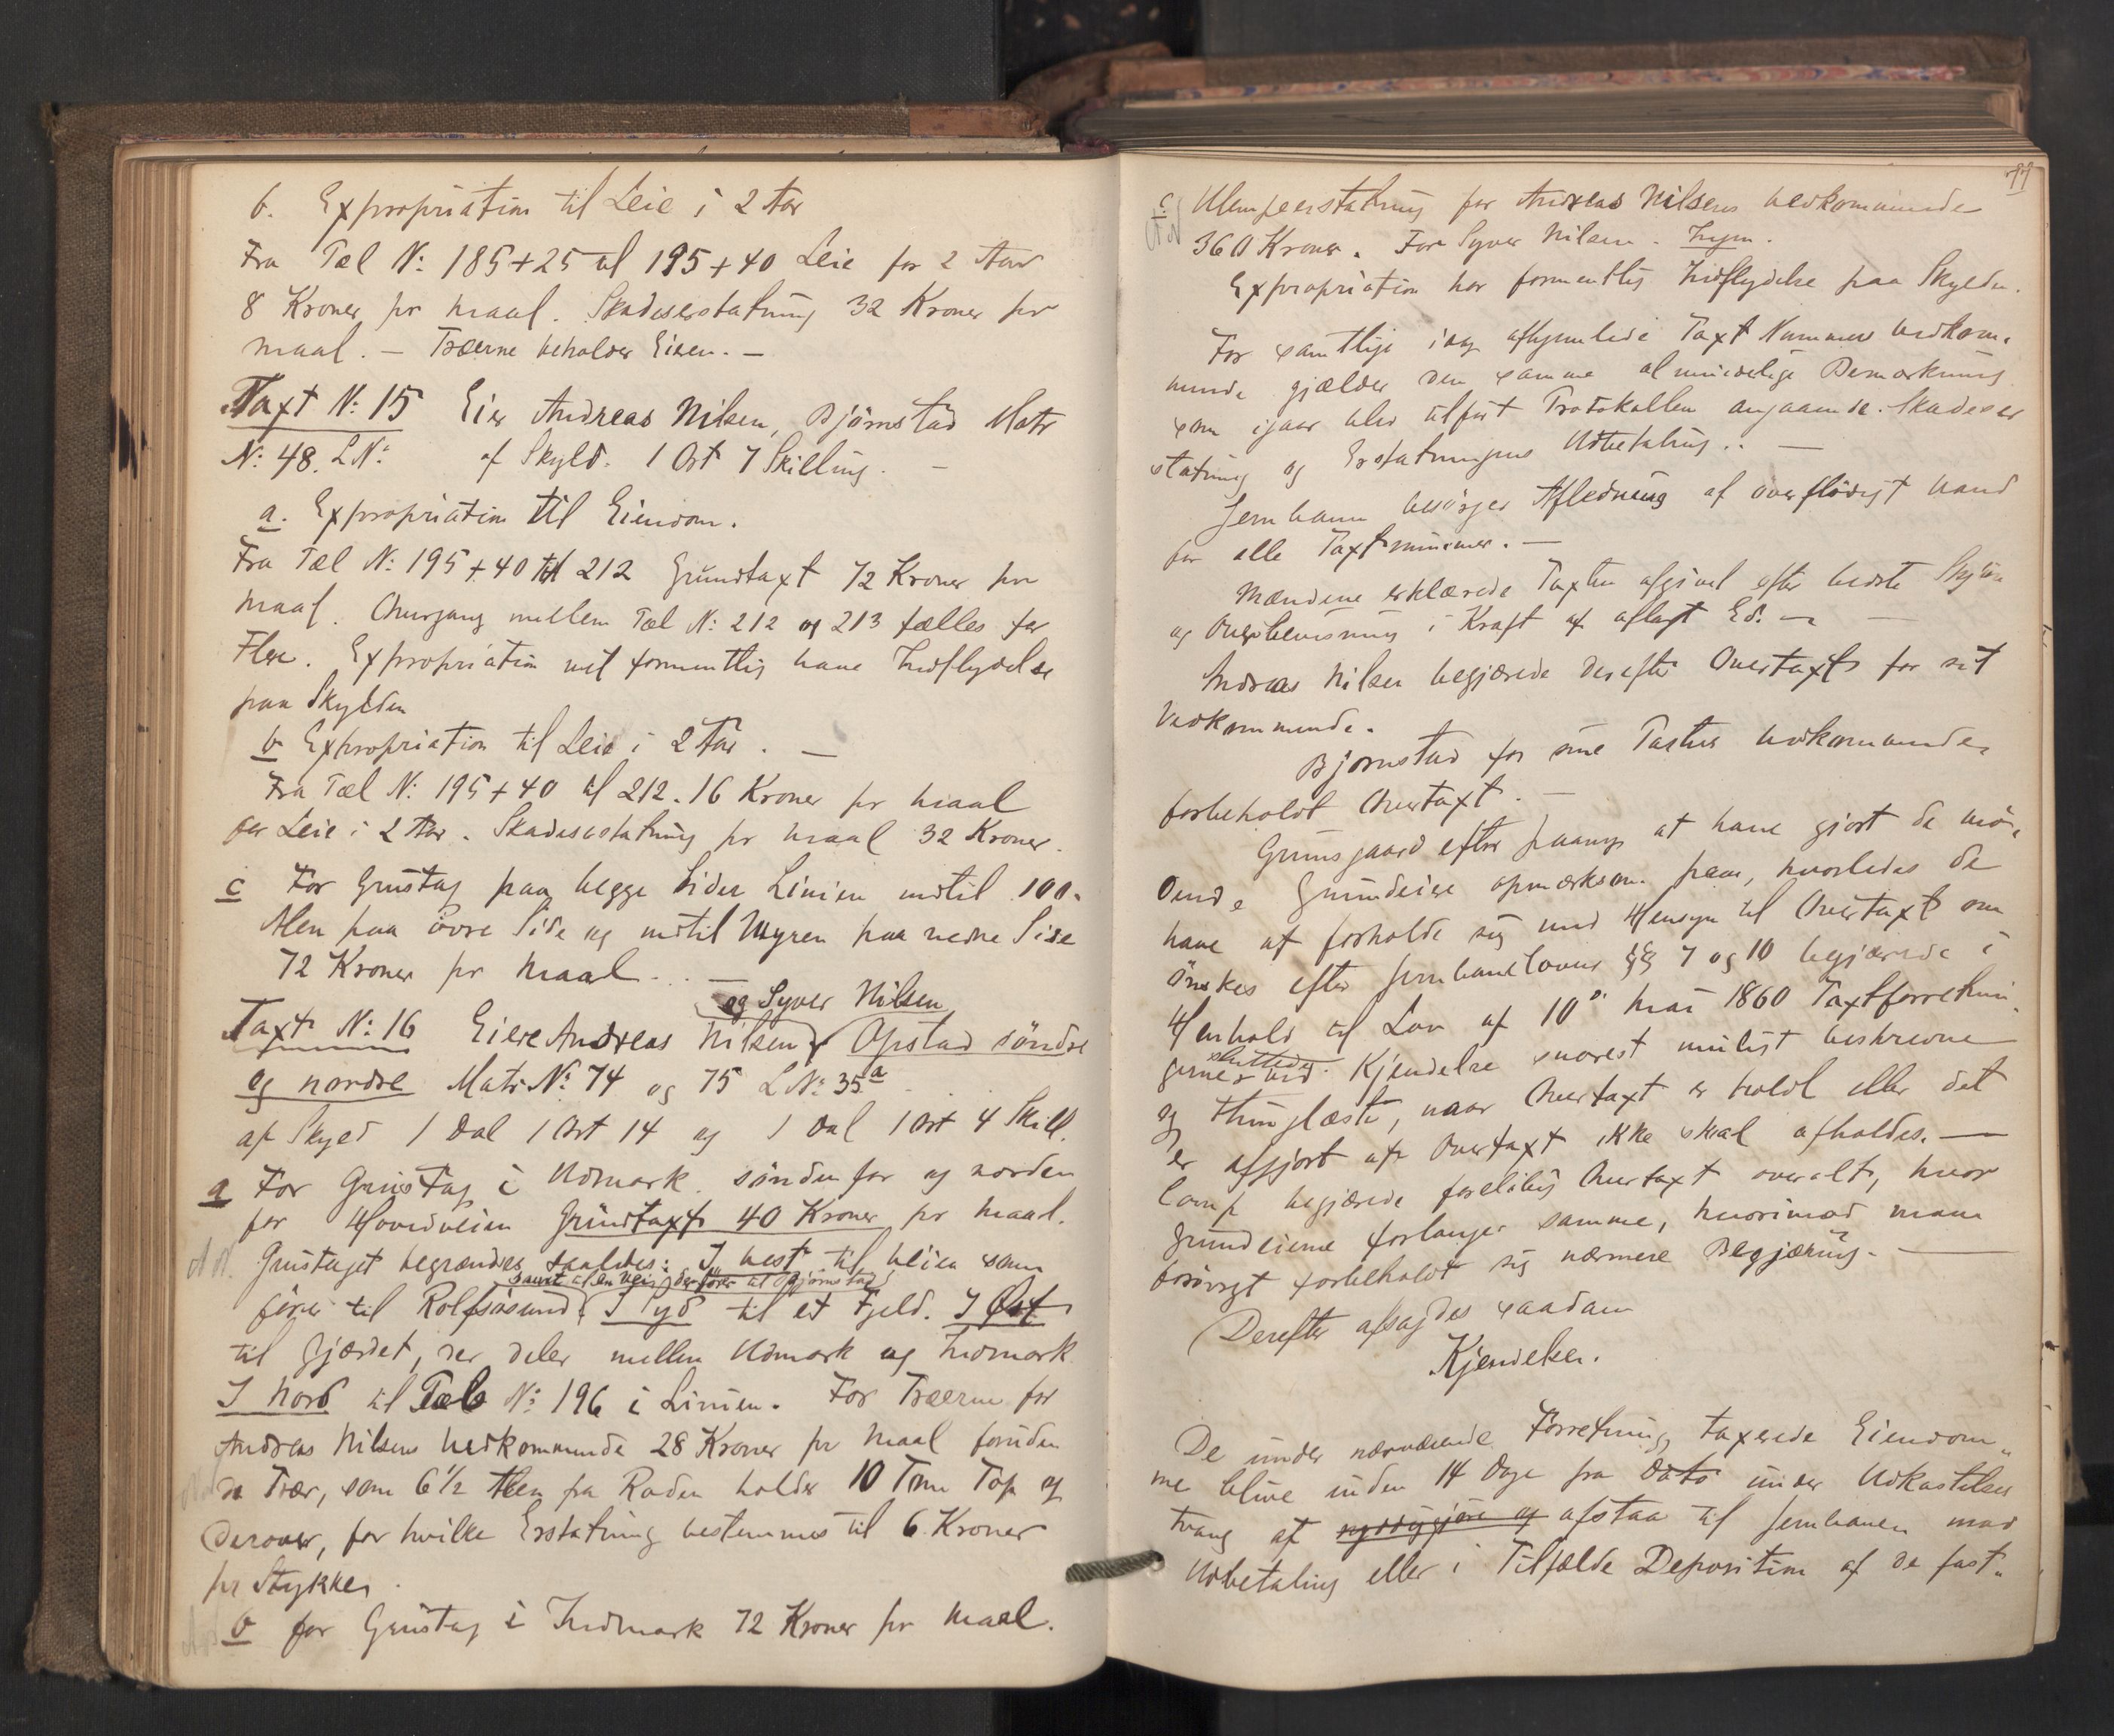 b. Expropriation til Leie i 2 Aar
Fra Pæl N: 185+25 til 195+40 Leie for 2 Aar
8 Kroner pr Maal. Skadeserstatning 32 Kroner pr
Maal. — Træerne beholder Eieren. —
Taxt N: 15 Eier Andreas Nilsen, Bjørnstad Matr
N: 48. LN: af Skyld. 1 Ort 7 Skilling. —
a. Expropriation til Eiendom.
Fra Pæl N: 195+40 til 212 Grundtaxt 72 Kroner pr
Maal. Overgang mellem Pæl N: 212 og 213 fælles for
Flere. Expropriation vil formentlig have Indflydelse
paa Skylden
b Expropriation til Leie i 2 Aar. —
Fra Pæl N: 195+40 til 212. 16 Kroner pr Maal
for Leie i 2 Aar. Skadeserstatning pr Maal 32 Kroner.
c For Grustag paa begge Sider Linien indtil 100
Alen paa øvre Side og indtil Myren paa nedre Side
72 Kroner pr Maal. —
og Syver Nilsen
Taxt N: 16 Eiere Andreas Nilsen Opstad søndre
og nordre Matr N: 74 og 75 LN: 35a
af Skyld 1 Dal 1 Ort 14 og 1 Dal 1 Ort 4 Skill.
a For Grustag i Udmark søndenfor og norden
for Hovedveien Grundtaxt 40 Kroner pr Maal.
AN. Grustaget begrændses saaledes: I Vest til Veien som
samt af en Vei, der fører til Bjørnstad
fører til Rolfsøsund. I Syd til et Fjeld. I Øst
til Gjærdet, der deler mellem Udmark og Indmark
I Nord til Pæl N: 196 i Linien. For Træerne for
Andreas Nilsens Vedkommende 28 Kroner pr Maal foruden
de Trær, som 6½ Alen fra Roden holder 10 Tom Top og
derover, for hvilke Erstatning bestemmes til 6 Kroner
pr Stykke.
b for Grustag i Indmark 72 Kroner pr Maal.
77
c. Ulempeerstatning for Andreas Nilsens Vedkommende
AN 360 Kroner. For Syver Nilsen. Ingen.
Expropriation har formentlig Indflydelse paa Skylden.
For samtlige idag afhjemlede Taxt Nummers Vedkom-
mende gjælder den samme almindelige Bemærkning
som igaar blev tilført Protokollen angaaende Skadeser
statning og Erstatningens Udbetaling. —
Jernbanen besørger Afledning af overflødigt Vand
for alle Taxtnummer. —
Mændene erklærede Taxten afgivet efter bedste Skjøn
og Overbevisning i Kraft af aflagt Ed. — —
Andreas Nilsen begjærede derefter Overtaxt for sit
Vedkommende.
Bjørnstad for sine Parters Vedkommende
forbeholdt Overtaxt. —
Grimsgaard efter paany at have gjort de mø-
dende Grundeiere opmærksom paa, hvorledes de
have at forholde sig med Hensyn til Overtaxt om
ønskes efter Jernbanelovens §§ 7 og 10 begjærede i
Henhold til Lov af 10de Mai 1860 Taxtforretnin-
sluttede
gerne ved Kjendelse snarest muligt beskrevne
og thinglæste, naar Overtaxt er holdt eller det
er afgjort at Overtaxt ikke skal afholdes. —
Comp begjærede foreløbig Overtaxt overalt, hvor
Grundeierne forlanger samme, hvorimod man
forøvrigt forbeholdt sig nærmere Begjæring. —
Derefter afsagdes saadan
Kjendelse.
De under nærværende Forretning taxerede Eiendom-
me blive inden 14 Dage fra Dato under Udkastelses
tvang at ryddiggjøre og afstaa til Jernbanen mod
Udbetaling eller i Tilfælde Deposition af de fast-